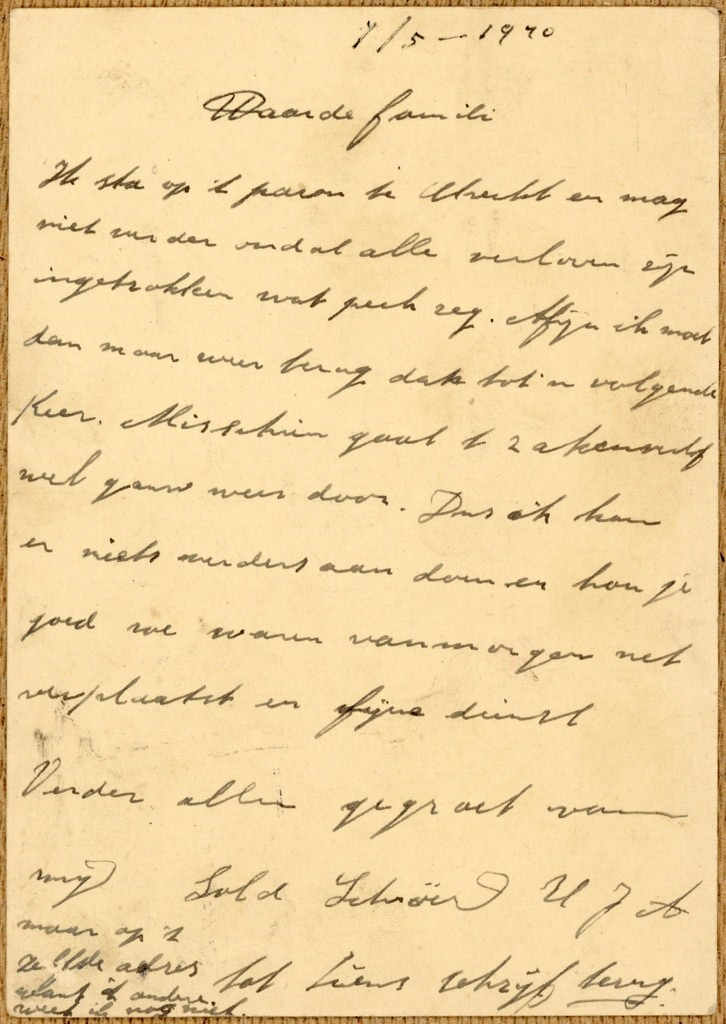 7/5 - 1940
Waarde famili
Ik sta op 't paron te Utrecht en mag
niet verder omdat alle verloven zijn
ingetrokken wat pech zeg. Afijn ik moet
dan maar weer terug dat tot 'n volgende
Keer. Misschien gaat 't zakenverlof
wel gauw weer door. Dus ik kan
er niets verders aan doen en hou je
goed we waren vanmorgen net
verplaatst en fijne dienst
Verder allen gegroet van
mij Sold Schröer H J A
maar op 't
zelfde adres
want 't andere
weet ik nog niet.
tot ziens schrijf terug.